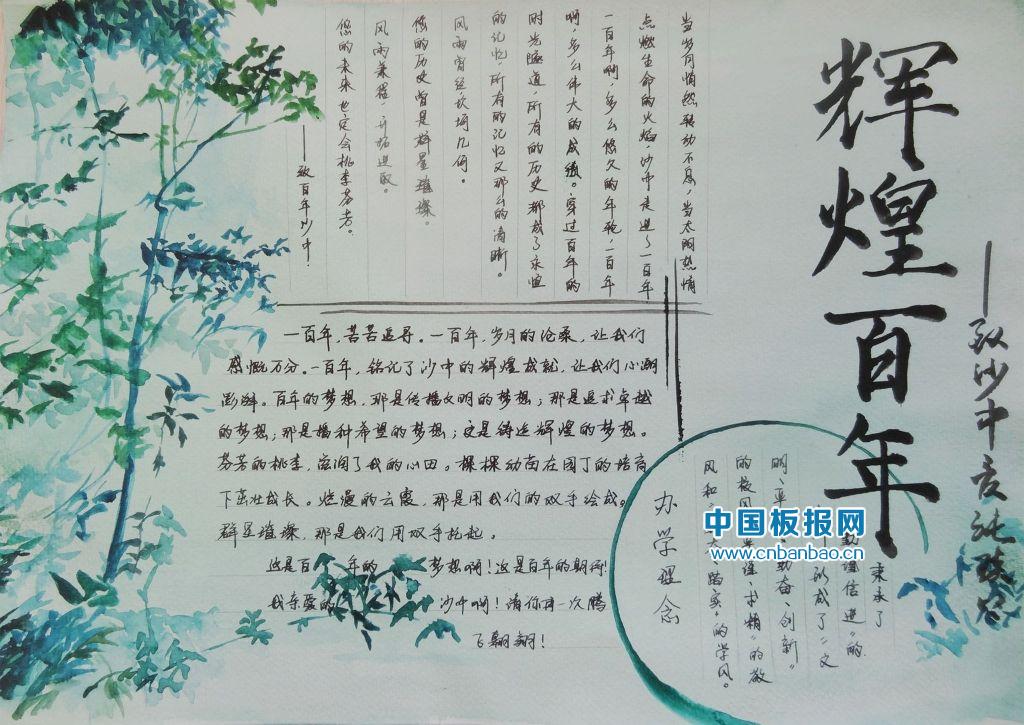 辉煌百年
——致沙中
当岁月悄然转动不息,当太阳热情
点燃生命的火焰,沙中走进了一百年
一百年啊,多么悠久的年轮,一百年
啊,多么伟大的成绩。穿过百年的
时光隧道,所有的历史都成了永恒
的记忆,所有的记忆又那么的清晰。
风雨曾经坎坷几何。
您的历史曾是群星璀璨。
风雨兼程,开拓进取。
您的未来也定会桃李芬芳。
——致百年沙中!
一百年,苦苦追寻。一百年,岁月的沧桑,让我们
感慨万分。一百年,铭记了沙中的辉煌成就,让我们心潮
澎湃。百年的梦想,那是传播文明的梦想;那是追求卓越
的梦想;那是播种希望的梦想;这是铸造辉煌的梦想。
芬芳的桃李,滋润了我的心田。棵棵幼苗在园丁的培育
下茁壮成长。烂漫的云霞,那是用我们的双手绘成。
群星璀璨,那是我们用双手托起。
这是百年的梦想啊!这是百年的期待!
我亲爱的沙中啊!请你再一次腾
飞翱翔!
办学理念
秉承了
信进”的
形成了“文
明、勤奋、创新。
的校风 求精”的教
风和 踏实”的学风。
中国板报网
www.cnbanbao.cn